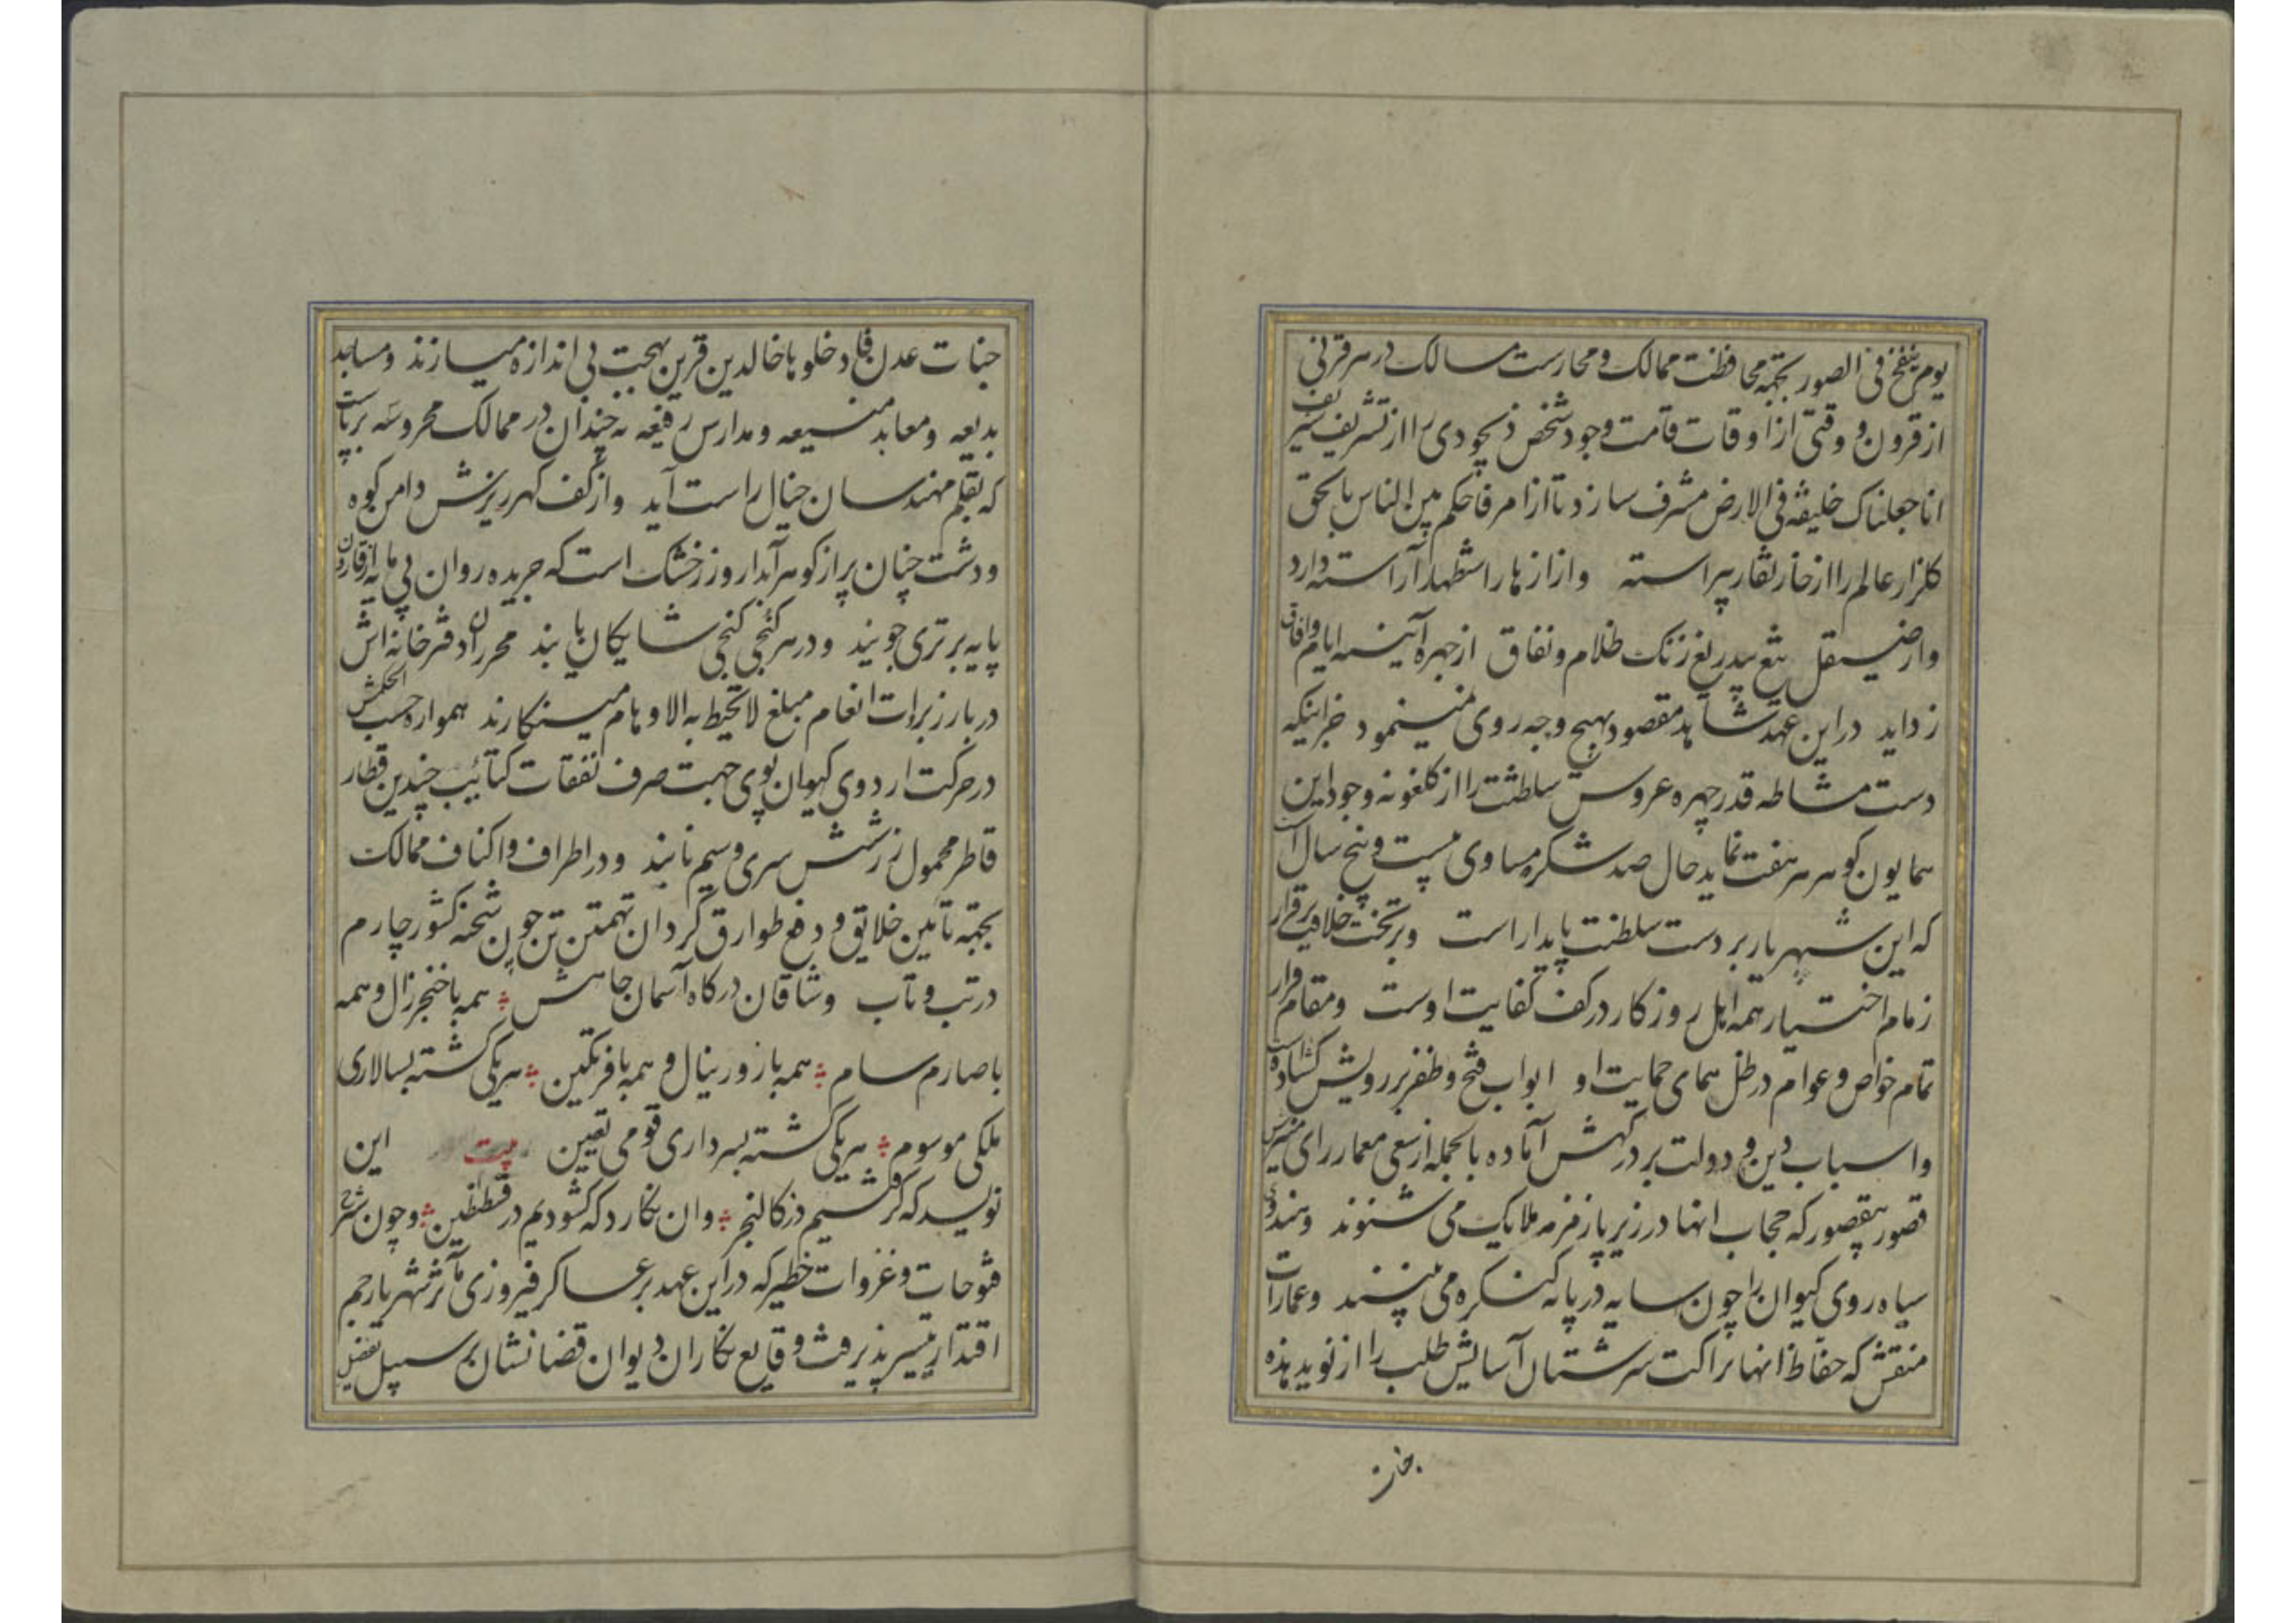 یوم ینفخ فی الصور بجهة محافظت ممالک و محارست مسالک در هر قرنی
از قرون و وقتی از اوقات قامت وجود شخص ذیجودی را از تشریف شریف
انا جعلناک خلیفة فی الارض مشرف سازد تا از امر فاحکم بین الناس بالحق
کلزار عالم را از خار نقار پیراسته و از ازهار استظهار آراسته دارد
و از صیقل تیغ بیدریغ زنک ظلام و نفاق از چهره آینه ایام وافاق
زداید در این عهد شاهد مقصود بهیچ وجه روی نمینمود جز اینکه
دست مشاطه قدر چهره عروس سلطنت را از کلغونه وجود این
همایون کوهر هر هفت نماید حال صد شکر مساوی بیست و پنج سال است
که این شهریار بر دست سلطنت پایدار است و بر تخت خلافت برقرار
زمام اختیار همه اهل روزکار در کف کفایت اوست و مقام قرار
تمام خواص و عوام در ظل همای حمایت او ابواب فتح و ظفر بر رویش کشاده است
و اسباب دین و دولت بر درکهش آماده بالجمله از سعی معمار رای
قصور بیقصور که حجاب انها در زیر پا زمزمه ملایک می شنوند و هندوی
سیاه روی کیوان را چون سایه در پایه کنکره می بینند و عمارات
منقش که حفاظ انها نزاکت سرشتان آسایش طلب را از نوید هذه
جنات عدن فادخلوها خالدین قرین بهجت بی اندازه میسازند و مساجد
بدیعه و معابد منیعه و مدارس رفیعه نه چندان در ممالک محروسه برپاست
که بقلم مهندسان خیال راست آید و از کف کهرریزش دامن کوه
و دشت چنان پر از کوهر آبدار و زر خشک است که جریده روان بی مایه از قارون
پایه برتری جویند و در هر کنجی کنجی شایکان یابند محرران دفترخانه اش
در بارز برات انعام مبلغ لا تحیط به الاوهام مینکارند همواره حسب الحکمش
در حرکت اردوی کیوان پوی جهت صرف نفقات کتائب چندین قطار
قاطر محمول زر شش سری و سیم نابند و در اطراف و اکناف ممالک
بجهة تأمین خلایق و دفع طوارق کردان تهمتن تن چون شحنه کشور چارم
در تب و تاب و شاقان درکاه آسمان جاهش همه با خنجر زال و همه
با صارم سام همه با زور ینال و همه با فر تکین هر یکی کشته بسالاری
ملکی موسوم هر یکی کشته بسرداری قومی تعیین بیت این
نویسد که کرفتیم در کالنجر وان نکارد که کشودیم در قسطنطین و چون شرح
فتوحات و غزوات خطیر که در این عهد بر عساکر فیروزی مآثر شهریار جم
اقتدار تیسیر پذیرفت وقایع نکاران دیوان قضا نشان بر سبیل تفصیل